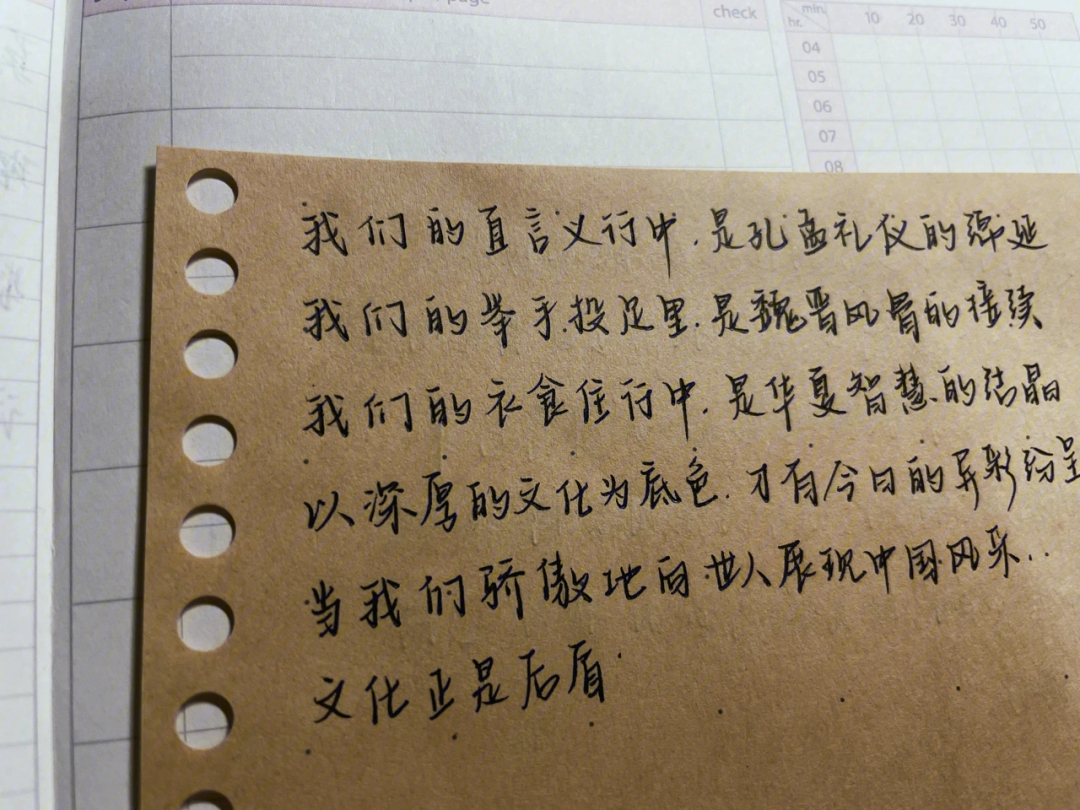 page
check
min.
hr.
10 20 30 40 50
04
05
06
07
08
我们的直言义行中,是孔孟礼仪的绵延
我们的举手投足里,是魏晋风骨的接续
我们的衣食住行中,是华夏智慧的结晶
以深厚的文化为底色,才有今日的异彩纷呈
当我们骄傲地向世人展现中国风采..
文化正是后盾